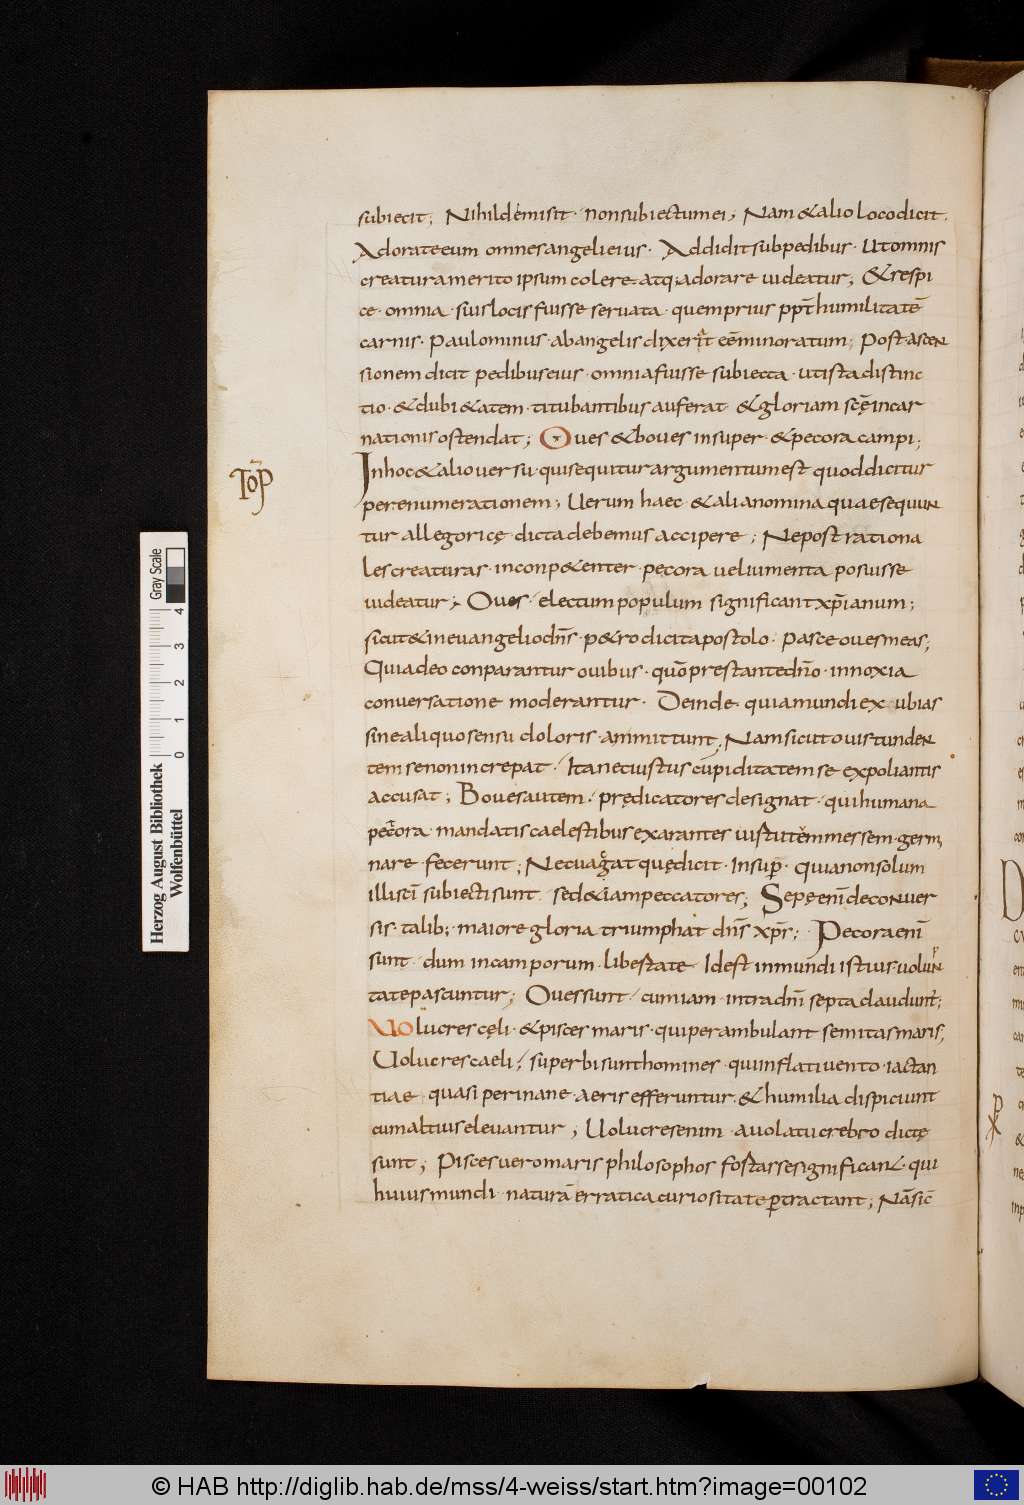 subiecit; Nihil demisit · non subiectum ei; Nam & alio loco dicit.
Adorate eum omnes angeli eius · Addidit sub pedibus · Ut omnis
creatura merito ipsum colere atq; adorare uideatur; & respi
ce · omnia · suis locis fuisse seruata · quem prius ppt̄ humilitatē
carnis · Paulominus · ab angelis dixerat eē minoratum; Post ascen
sionem dicit pedibus eius · omnia fuisse subiecta · ut ista distinc
tio · & dubi&atem · titubantibus auferat & gloriam scę incar
nationis ostendat; Oues & boues insuper · & pecora campi;
In hoc & alio uersu · qui sequitur argumentum est quod dicitur
per enumerationem; Uerum haec & alia nomina quae sequun
tur allegoricę dicta debemus accipere; Ne post rationa
les creaturas · inconp&enter · pecora uel iumenta posuisse
uideatur; Oues · electum populum significant xp̄ianum;
sicut & in euangelio dn̄s · p&ro dicit apostolo · pasce oues meas;
Quia deo conparantur ouibus · quō prestante dn̄o · innoxia
conuersatione moderantur · Deinde quia mundi exubias
sine aliquo sensu doloris · ammittunt; Nam sicut ouis tunden
tem se non increpat · Ita nec iustus cupiditatem se expoliantis
accusat; Boues autem · prędicatores designat · qui humana
pectora mandatis caelestibus exarantes uirtutēm messem · germi
nare fecerunt; Nec uacat quę dicit · Insup̄ · quia non solum
illi scī subiecti sunt sed &iam peccatores; Sepe enī de conuer
sis talib; · maiore gloria triumphat dn̄s xp̄s; Pecora enī
sunt · dum in camporum · libertate Id est in mundi istius · uolup
tate pascuntur; Oues sunt · cum iam · intra dn̄i septa claudunt̄;
Uolucres cęli · & pisces maris · qui perambulant semitas maris;
Uolucres caeli · superbi sunt homines · qui inflati uento · iactan
tiae quasi per inane aeris efferuntur · & humilia dispiciunt
cum altius eleuantur; Uolucres enim · a uolatu crebro dictę
sunt; Pisces uero maris philosophos fortasse significant · qui
huius mundi naturā erratica curiositate ptractant; Nā sic̄
Top̄
Herzog August Bibliothek
Wolfenbüttel
0 1 2 3 4
Gray Scale
© HAB http://diglib.hab.de/mss/4-weiss/start.htm?image=00102